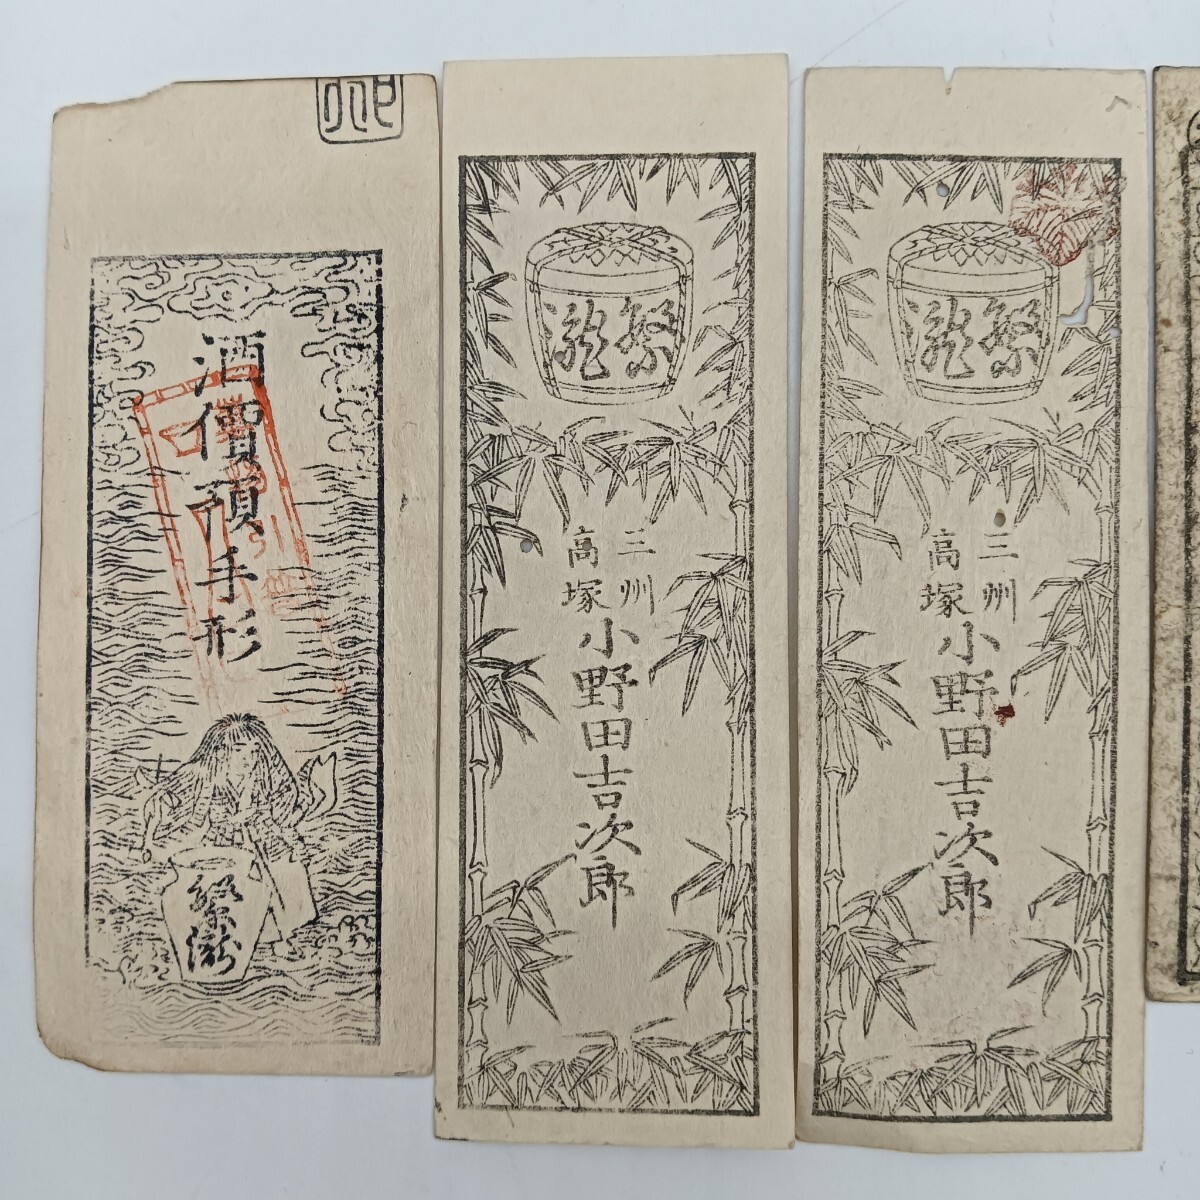 酒價預手形
繁瀧
繁瀧
三州
高塚
小野田吉次郎
繁瀧
三州
高塚
小野田吉次郎